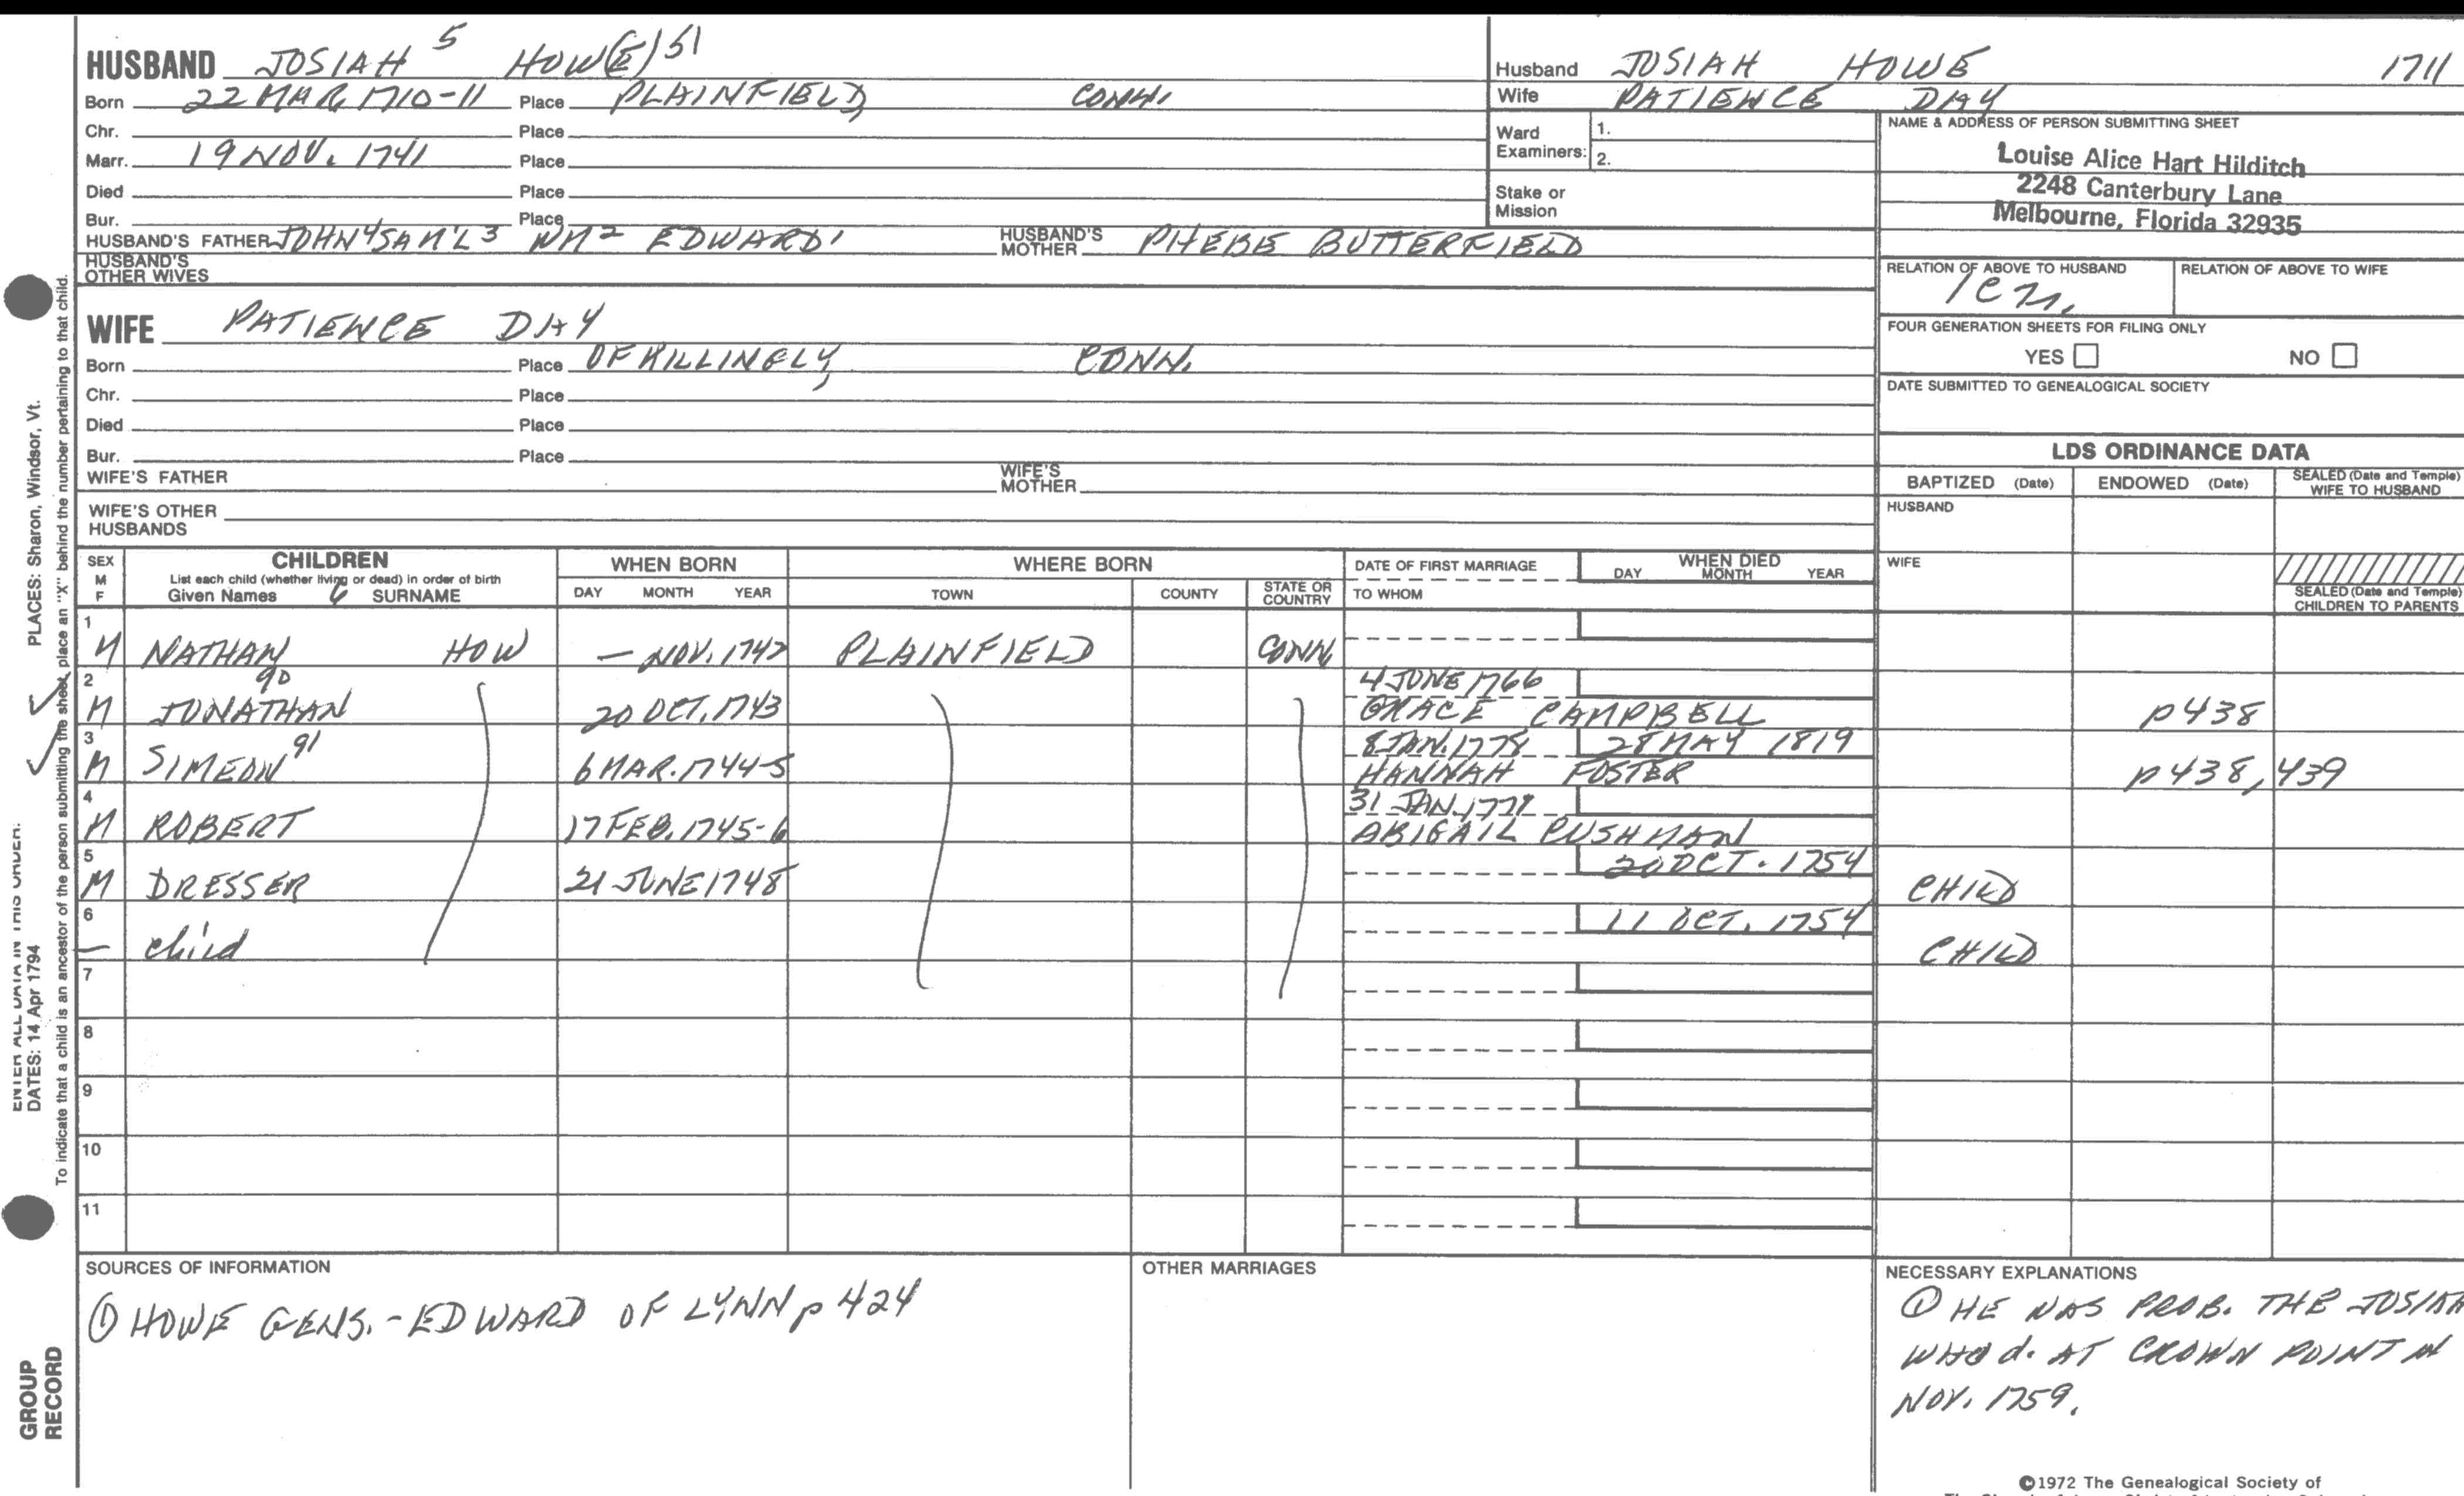 HUSBAND JOSIAH 5 HOW(E) 51
Born 22 MAR. 1710-11 Place PLAINFIELD, CONN.
Chr. Place
Marr. 19 NOV. 1741 Place
Died Place
Bur. Place
HUSBAND'S FATHER JOHN 4 SAM'L 3 WM 2 EDWARD 1 HUSBAND'S MOTHER PHEBE BUTTERFIELD
HUSBAND'S OTHER WIVES
WIFE PATIENCE DAY
Born Place OF KILLINGLY, CONN.
Chr. Place
Died Place
Bur. Place
WIFE'S FATHER WIFE'S MOTHER
WIFE'S OTHER HUSBANDS
Husband JOSIAH HOWE 1711
Wife PATIENCE DAY
Ward Examiners: 1.
2.
Stake or Mission
NAME & ADDRESS OF PERSON SUBMITTING SHEET
Louise Alice Hart Hilditch
2248 Canterbury Lane
Melbourne, Florida 32935
RELATION OF ABOVE TO HUSBAND RELATION OF ABOVE TO WIFE
FOUR GENERATION SHEETS FOR FILING ONLY
YES NO
DATE SUBMITTED TO GENEALOGICAL SOCIETY
LDS ORDINANCE DATA
BAPTIZED (Date) ENDOWED (Date) SEALED (Date and Temple) WIFE TO HUSBAND
HUSBAND
WIFE
SEALED (Date and Temple) CHILDREN TO PARENTS
SEX M F CHILDREN WHEN BORN WHERE BORN DATE OF FIRST MARRIAGE WHEN DIED
List each child (whether living or dead) in order of birth
Given Names 6 SURNAME DAY MONTH YEAR TOWN COUNTY STATE OR COUNTRY TO WHOM DAY MONTH YEAR
1 M NATHAN HOW — NOV. 1742 PLAINFIELD CONN.
2 M JONATHAN 90 20 OCT. 1743 4 JUNE 1766 GRACE CAMPBELL p 438
3 M SIMEON 91 6 MAR. 1744-5 8 JAN. 1778 HANNAH FOSTER 28 MAY 1819 p 438, 439
4 M ROBERT 17 FEB. 1745-6 31 JAN. ABIGAIL
5 M DRESSER 21 JUNE 1748 20 OCT. 1754 CHILD
6 — child 11 OCT. 1754 CHILD
7
8
9
10
11
SOURCES OF INFORMATION
① HOWE GENS. - EDWARD OF LYNN p 424
OTHER MARRIAGES
NECESSARY EXPLANATIONS
① HE WAS PROB. THE JOSIAH
WHO d. AT CROWN POINT IN
NOV. 1759.
©1972 The Genealogical Society of
PLACES: Sharon, Windsor, Vt.
To indicate that a child is an ancestor of the person submitting the sheet, place an "X" behind the number pertaining to that child.
ENTER ALL DATA IN THIS ORDER:
DATES: 14 Apr 1794
GROUP
RECORD